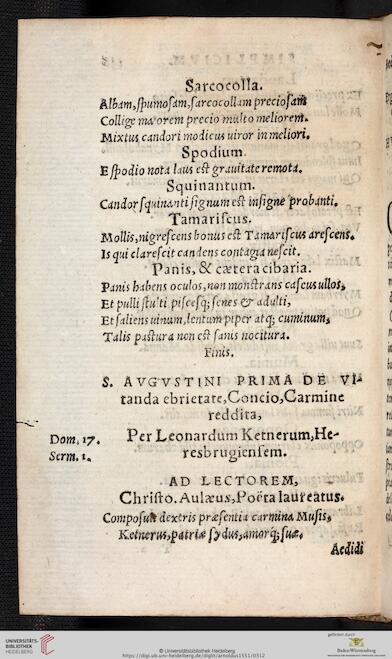 Sarcocolla.
Albam, spumosam, sarcocollam preciosam
Collige maiorem precio multo meliorem.
Mixtus candori modicus uiror in meliori.
Spodium.
E spodio nota laus est grauitate remota.
Squinantum.
Candor squinanti signum est insigne probanti.
Tamariscus.
Mollis, nigrescens bonus est Tamariscus arescens.
Is qui clarescit candens contagia nescit.
Panis, & cætera cibaria.
Panis habens oculos, non monstrans caseus ullos,
Et pulli stulti piscesq; senes & adulti,
Et saliens uinum, lentum piper atq; cuminum,
Talis pastura non est sanis nocitura.
Finis.
S. AVGVSTINI PRIMA DE VI-
tanda ebrietate, Concio, Carmine
reddita,
Dom. 17.
Serm. 1.
Per Leonardum Ketnerum, He-
resbrugiensem.
AD LECTOREM,
Christo. Aulæus, Poëta laureatus.
Composuit dextris præsentia carmina Musis,
Ketnerus, patriæ sydus, amorq; suæ.
Aedidi
UNIVERSITÄTS-
BIBLIOTHEK
HEIDELBERG
© Universitätsbibliothek Heidelberg
https://digi.ub.uni-heidelberg.de/diglit/arnoldus1551/0312
gefördert durch
Baden-Württemberg